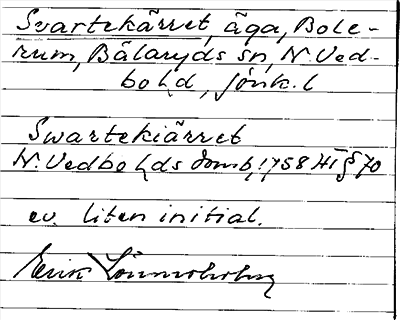 Svartekärret, äga, Bole-
rum, Bälaryds sn, N. Ved-
bo hd, Jönk. l
Swartekiärret
N. Vedbo hds domb, 1758 HT § 70
ev. liten initial.
Erik